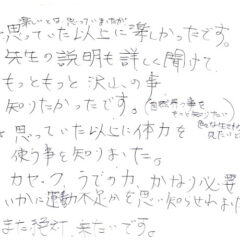 楽しいとは、思っていましたが
思っていた以上に楽しかったです。
先生の説明も詳しく聞けて
もっともっと沢山の事
知りたかったです。(自然界の事を
もっと知りたい
見たい
思っていた以上に体力を
使う事を知りました。
カセ、ク、うでの力、かなり必要
いかに運動不足かを思い知らされまし
また絶対、来たいです。